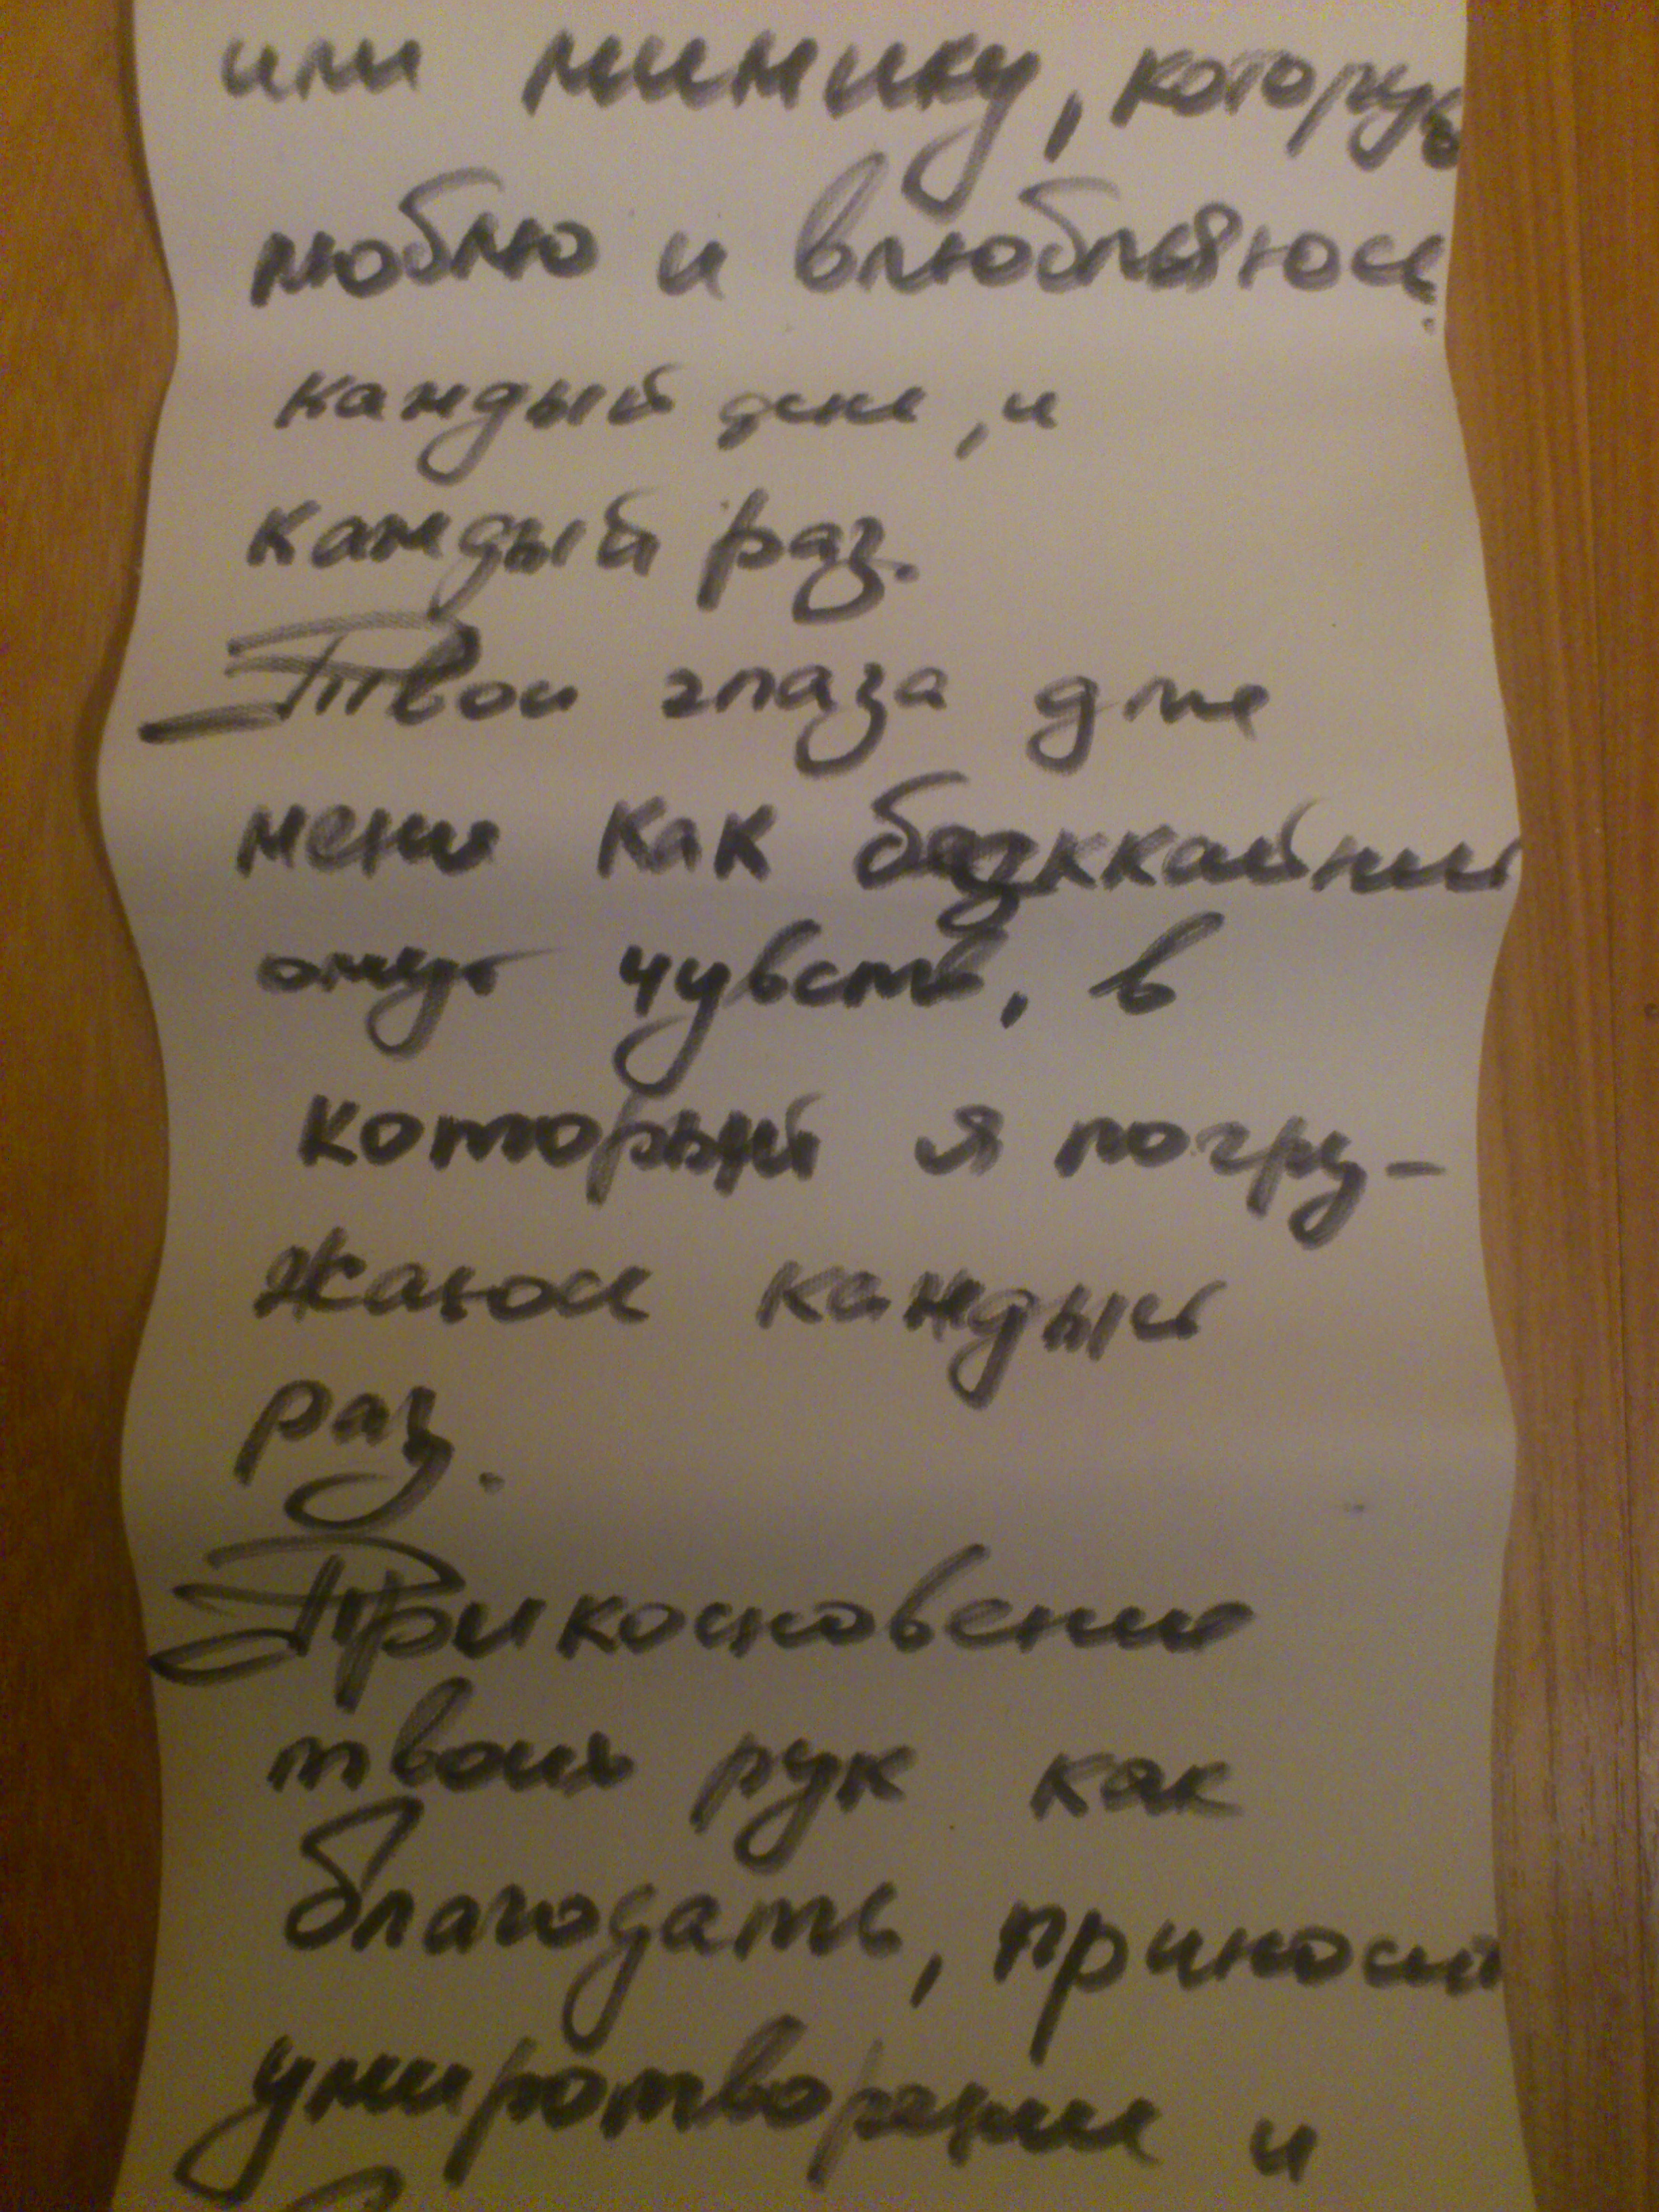 или мимику, которую
люблю и влюбляюсь
каждый день, и
каждый раз.
Твои глаза для
меня как
омут чувств, в
который я погру-
жаюсь каждый
раз.
Прикосновение
твоих рук как
благодать, приносит
умиротворение и